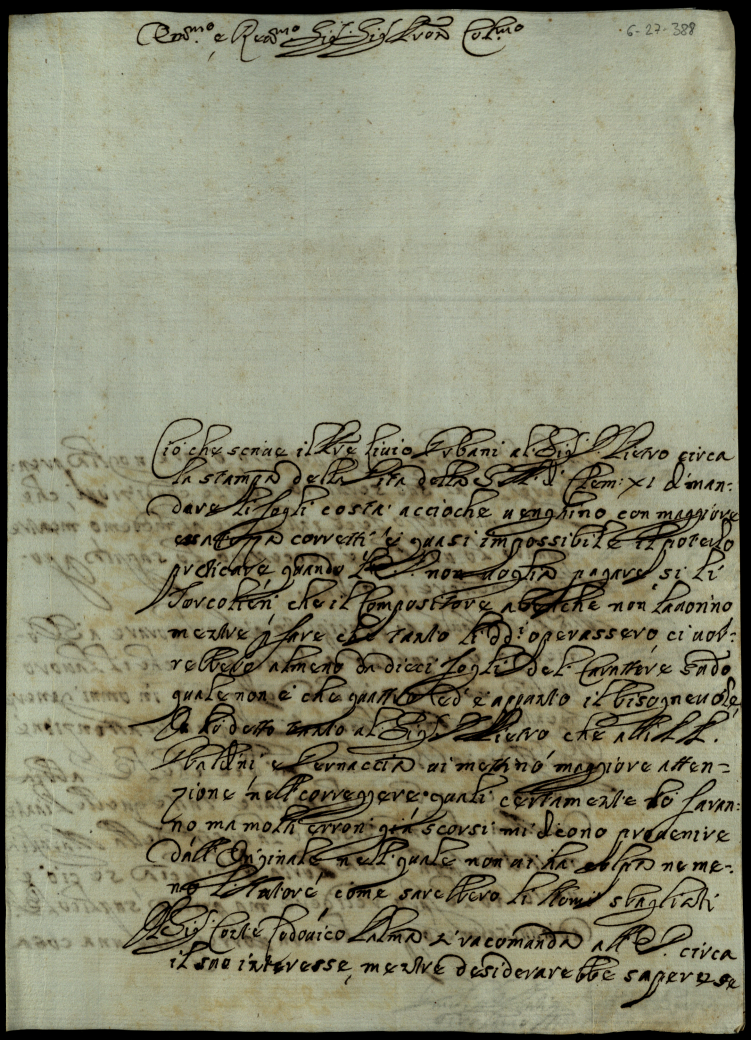 ·6-27-388
Ill.mo e Rev.mo Sig.r Sig.r Pron Col.mo
Ciò che scrive il Pre Livio Urbani al Sig.r Pietro circa
la stampa della Vita della S. M. di Clem: XI di man-
dare li fogli costà acciòche venghino con maggiore
esatezza corretti è quasi impossibile il poterlo
praticare quando non voglia pagare si li
Torcolieri che il Compositore abenche non lavorino
mentre p fare che tanto li dd: operassero ci vor-
rebbero almeno da dieci fogli del Carattere
quale non è che quattro ed è appunto il bisognevole
Io hò detto tanto al Sig.r Pietro che alli
Baldini e Vernaccia vi mettino maggiore atten-
zione nell correggere quali certamente lo faran-
no ma molti errori già scorsi mi dicono provenire
dall Originale nell quale non vi ha colpa ne me-
no come sarebbero li Nomi sbagliati
Il Sig.r Conte Lodovico Palma si racomanda all circa
il suo interesse, mentre desiderarebbe sapere se